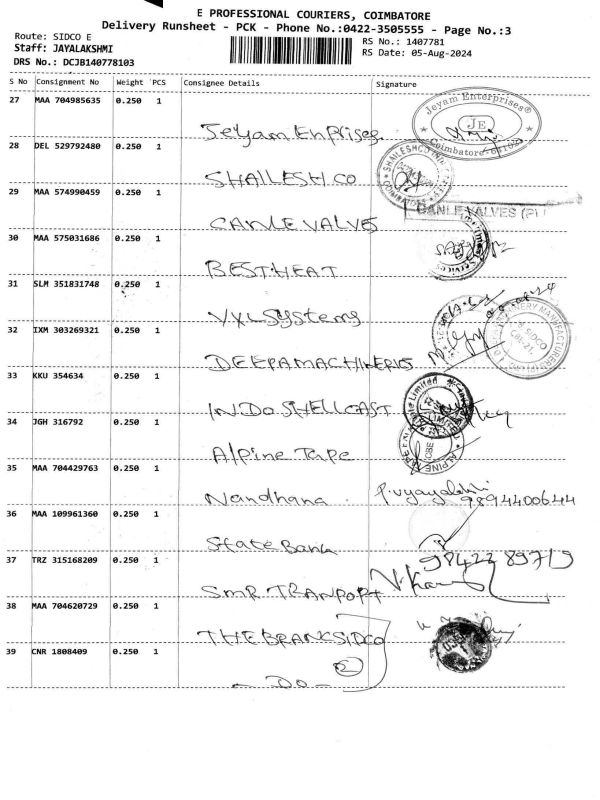 E PROFESSIONAL COURIERS, COIMBATORE
Delivery Runsheet - PCK - Phone No.:0422-3505555 - Page No.:3
Route: SIDCO E
Staff: JAYALAKSHMI
DRS No.: DCJB140778103
RS No.: 1407781
RS Date: 05-Aug-2024
S No Consignment No Weight PCS Consignee Details Signature
27 MAA 704985635 0.250 1
Jeyam Enprises
Jeyam Enterprises®
JE
Coimbatore
28 DEL 529792480 0.250 1
SHAILESH CO
29 MAA 574990459 0.250 1
CANLE VALVES
CANLE VALVES (P)
30 MAA 575031686 0.250 1
BESTHEAT
31 SLM 351831748 0.250 1
VXL Systems
32 IXM 303269321 0.250 1
DEEPA MACHINERIES
SIDCO
33 KKU 354634 0.250 1
INDO SHELL CAST
34 JGH 316792 0.250 1
Alpine Tape
ALPINE
35 MAA 704429763 0.250 1
Nandhana
9894400644
36 MAA 109961360 0.250 1
State Bank
9842289719
37 TRZ 315168209 0.250 1
SMR TRANPORT
38 MAA 704620729 0.250 1
THE BRANK SIDCO
39 CNR 1808409 0.250 1
2
- DO -